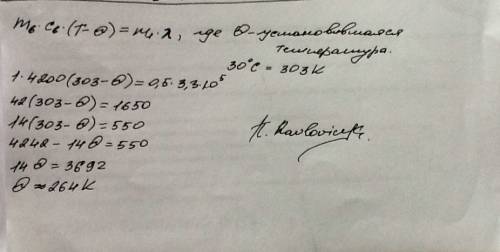 mв·cв·(T-Θ)=mл·λ, где Θ-установившаяся
температура.
30°C = 303K
1·4200(303-Θ)=0,5·3,3·10⁵
42(303-Θ)=1650
14(303-Θ)=550
4242-14Θ=550
14Θ=3692
Θ≈264K